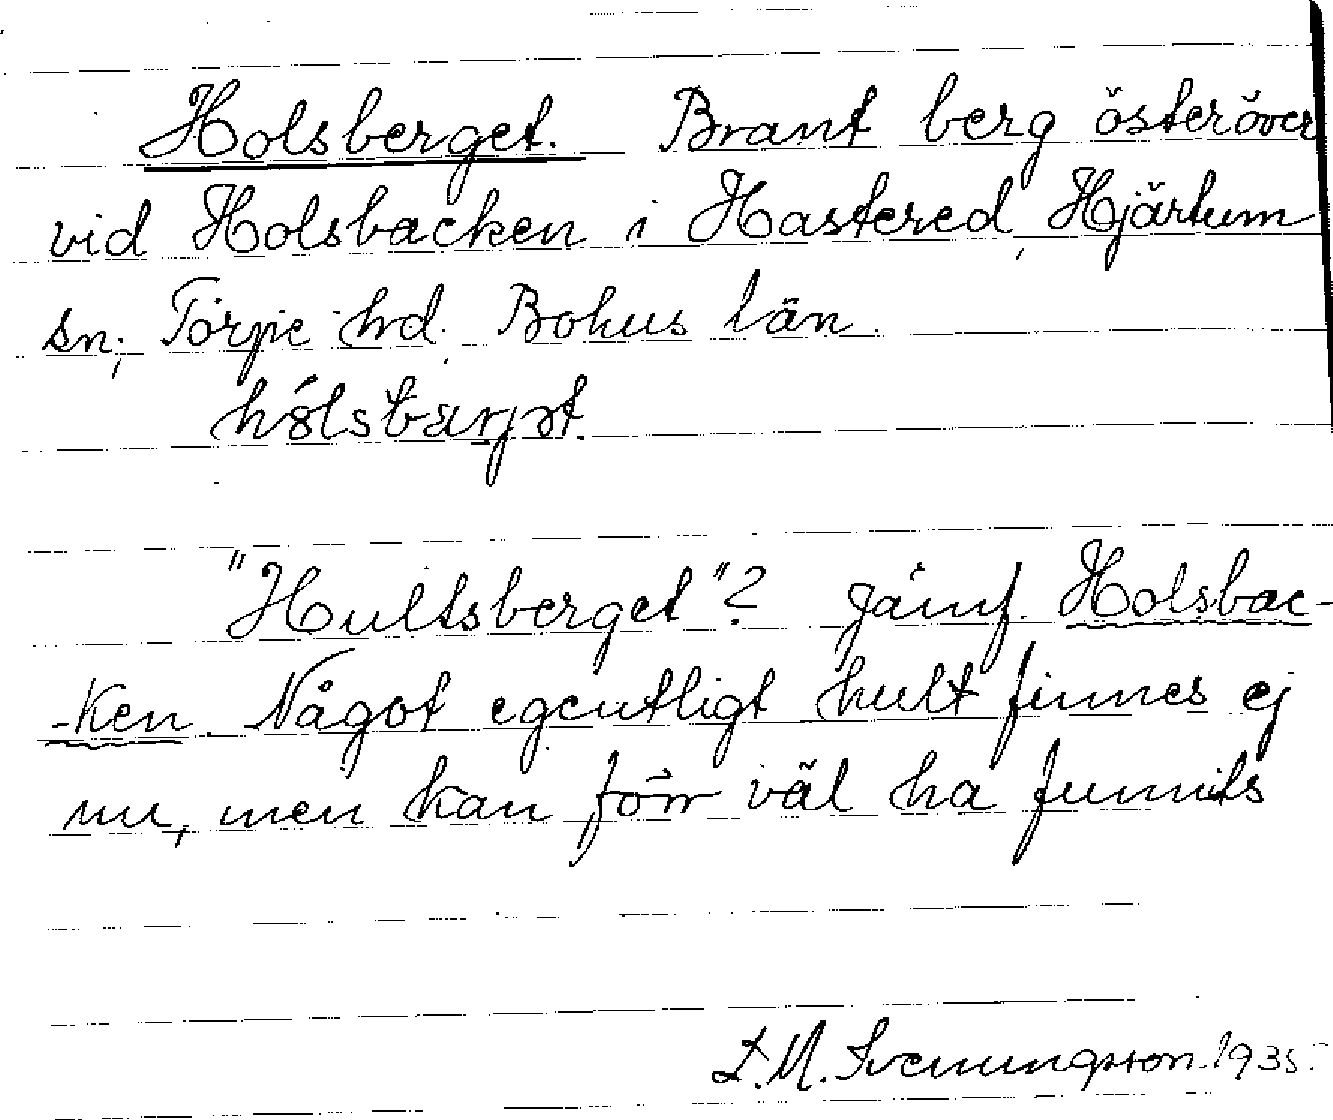 Holsberget. Brant berg österöver
vid Holsbacken i Hastered, Hjärtum
sn; Torpe hd. Bohus län.
"Hultsberget"? Jämf. Holsbac-
-ken. Något egentligt hult finnes ej
nu, men kan förr väl ha funnits
L. M. Svenungsson. 1935.